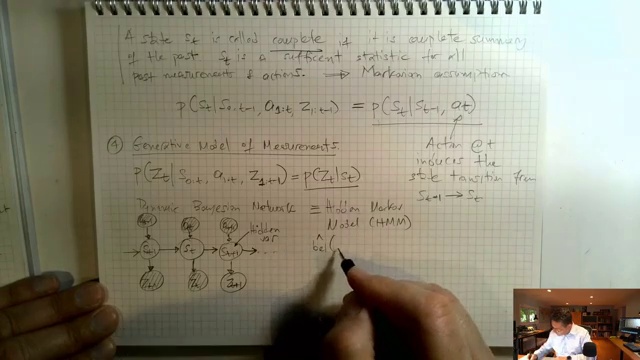 A state St is called complete if it is complete summary
of the past St is a sufficient statistic for all
past measurements & actions. → Markovian assumption
p(St|S0:t-1, a1:t, z1:t-1) = p(St|St-1, at)
Action @ t
induces the
state transition from
St-1 → St
④ Generative Model of Measurements
p(Zt|S0:t, a1:t, Z1:t-1) = p(Zt|St)
Dynamic Bayesian Network ≡ Hidden Markov
Model (HMM)
Hidden
var
St-1 → St → St+1 → ...
Zt-1 Zt Zt+1
bel(